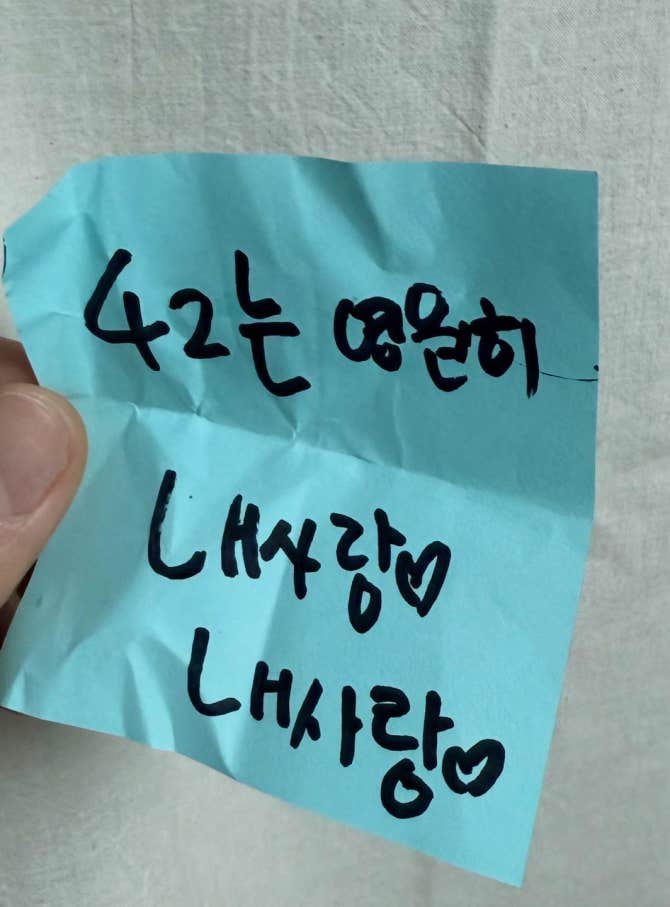 42는 영원히
내사랑♡
내사랑♡